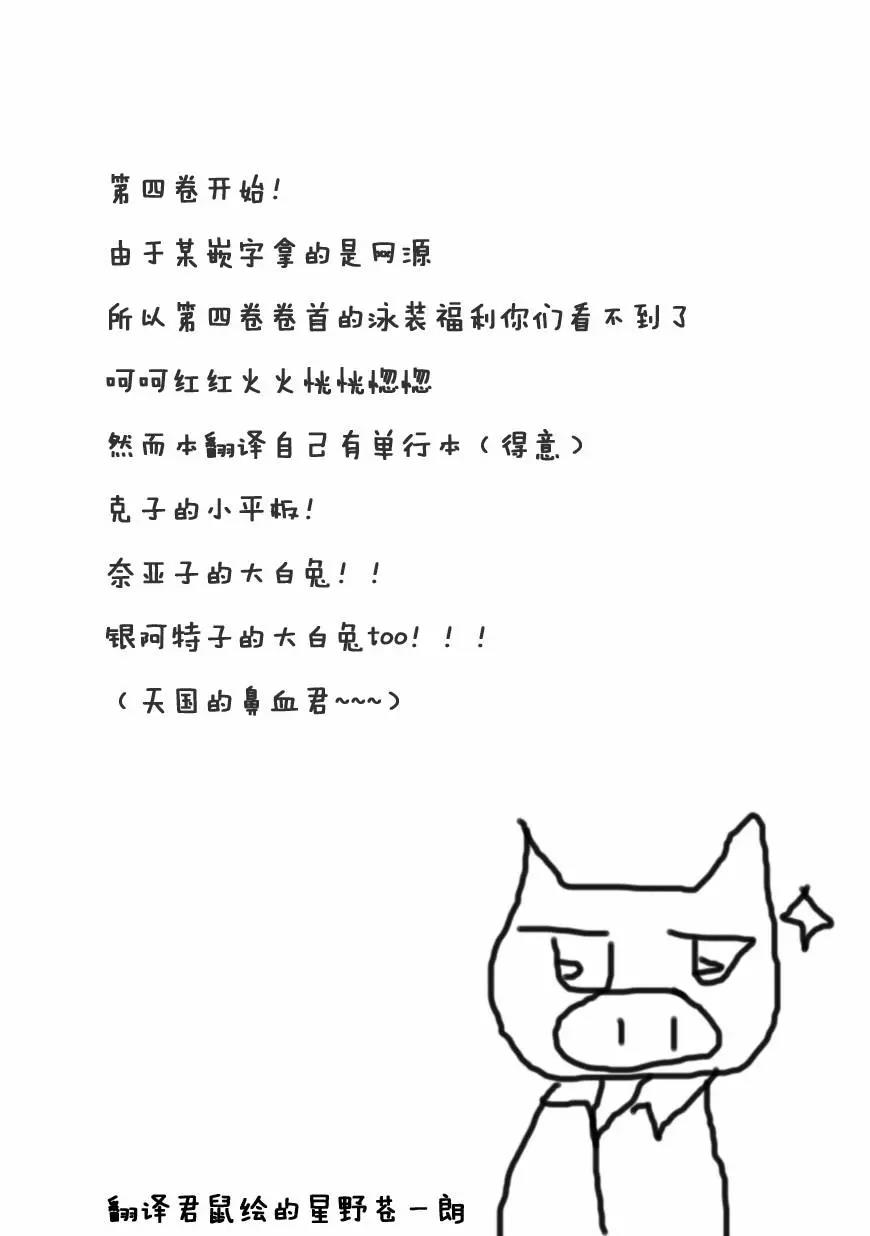 第四卷开始！
由于某嵌字拿的是网源
所以第四卷卷首的泳装福利你们看不到了
呵呵红红火火恍恍惚惚
然而本翻译自己有单行本（得意）
克子的小平板！
奈亚子的大白兔！！
银阿特子的大白兔too！！！
（天国的鼻血君~~~）
翻译君鼠绘的星野苍一朗